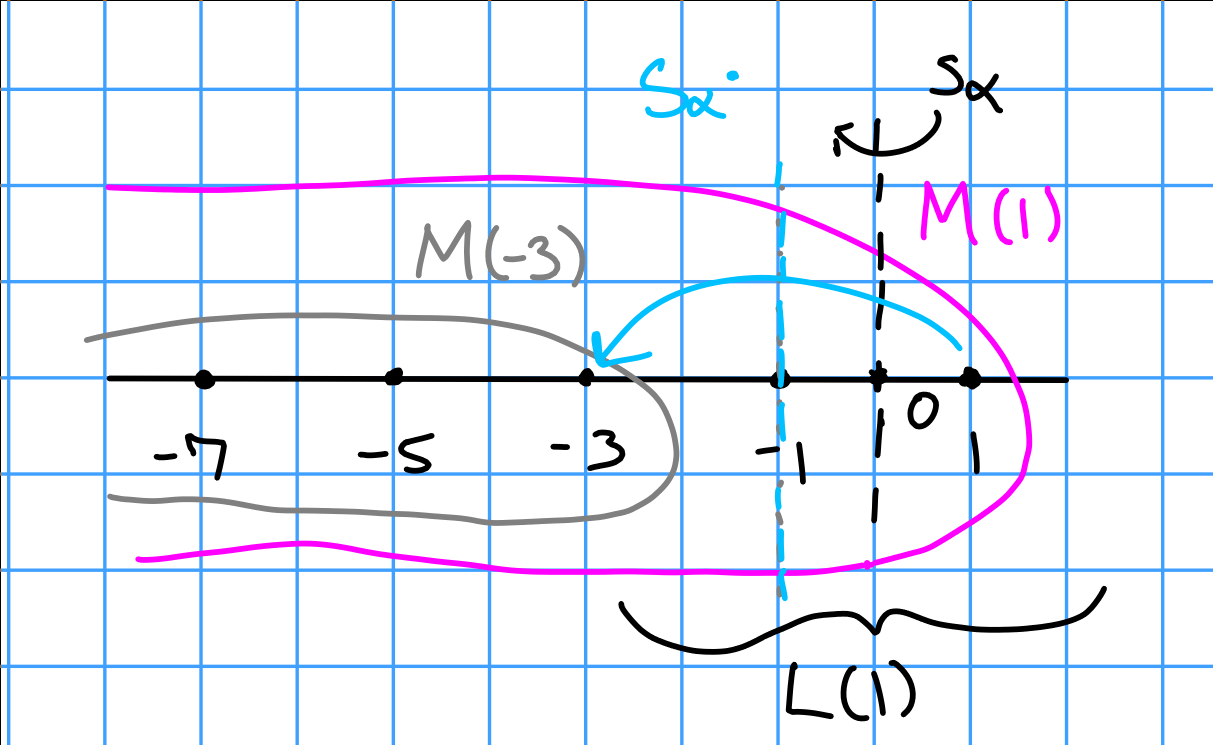 Sα·
Sα
M(1)
M(-3)
0
-7 -5 -3 -1 1
L(1)